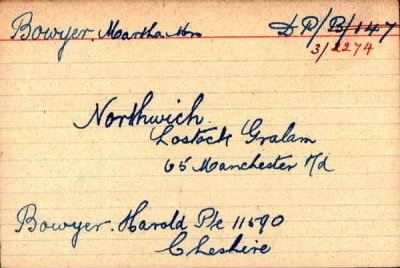 Bowyer. Martha Mrs D R/B/147
3/2274
Northwich.
Lostock Gralam
65 Manchester Rd
Bowyer. Harold Pte 11590
Cheshire